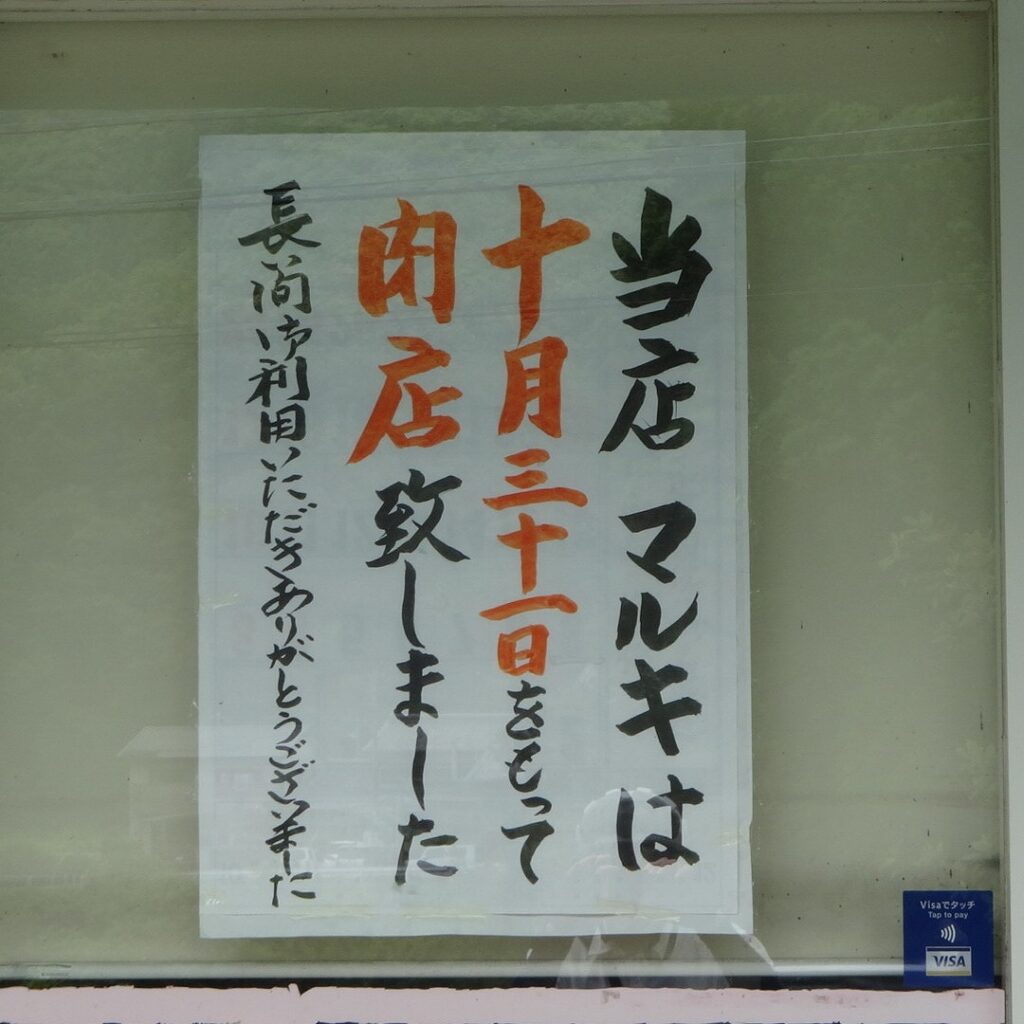 当店 マルキは
十月三十一日をもって
閉店致しました
長い間御利用いただきありがとうございました
Visaでタッチ
Tap to pay
VISA